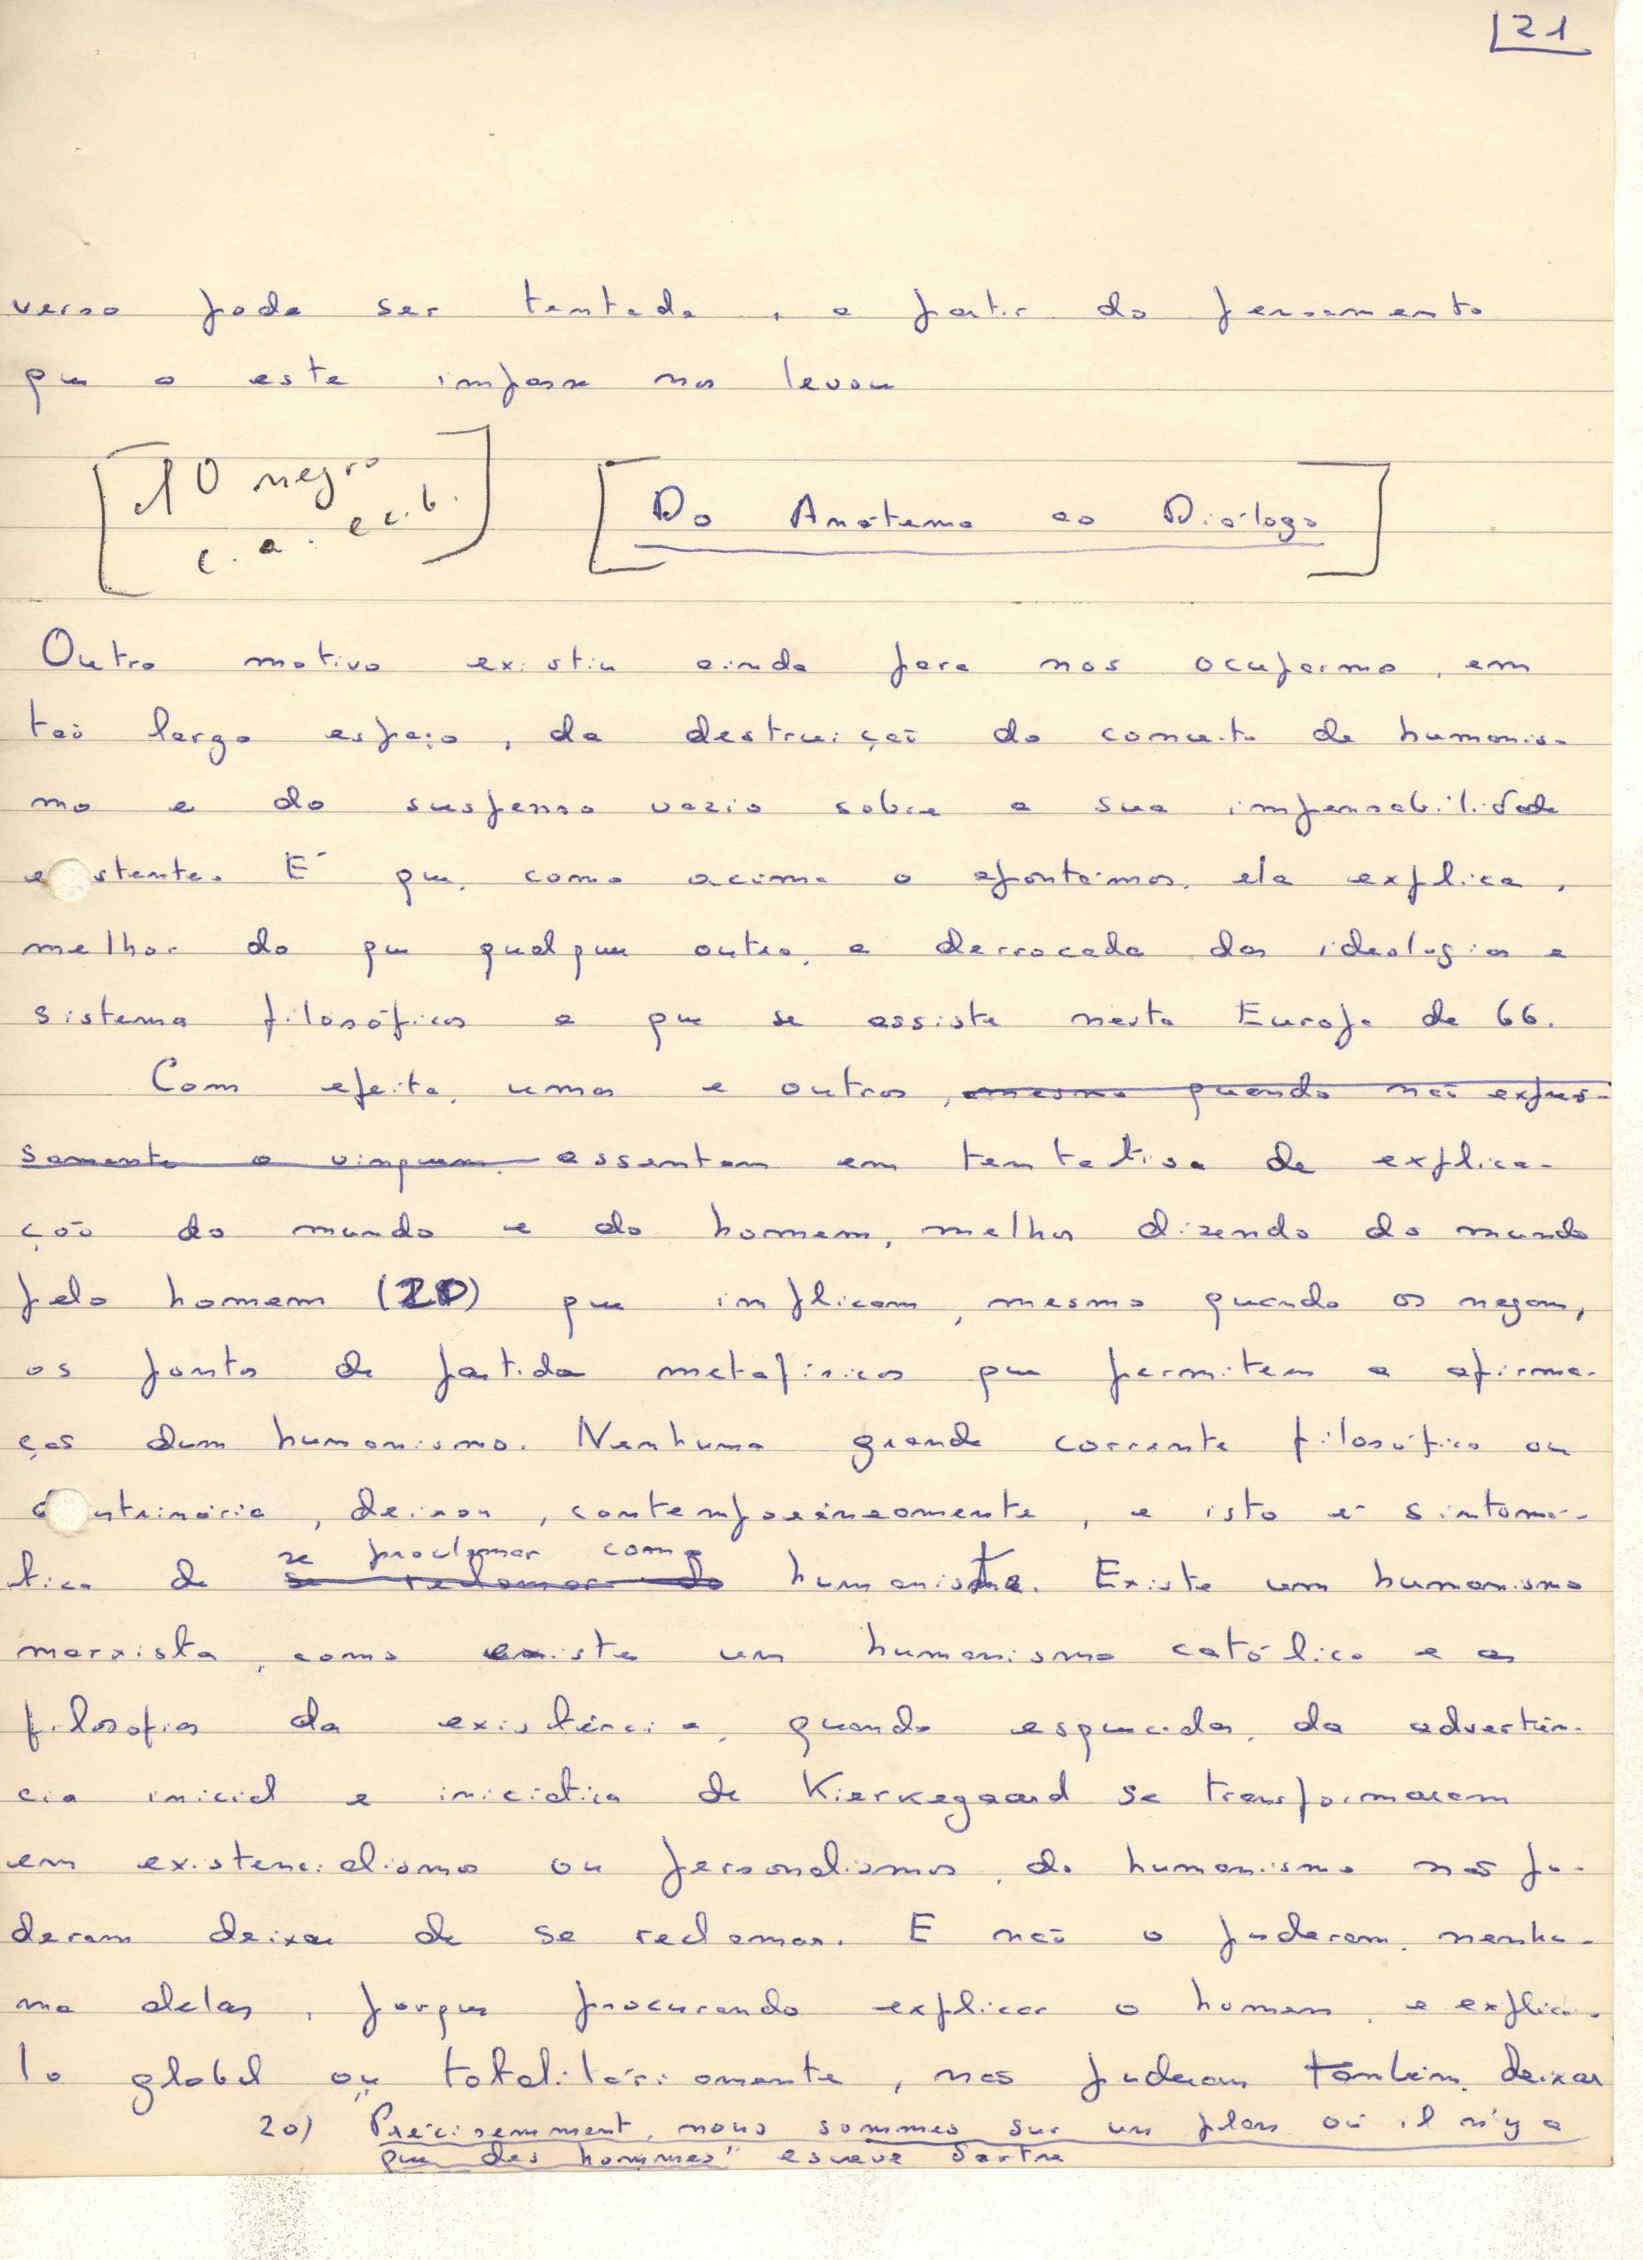 21
verso pode ser tentado, a partir do pensamento
que a este impasse nos levou
10 negro
c. a. e c. b.
Do Anátema ao Diálogo
Outro motivo existiu ainda para nos ocuparmos, em
tão largo espaço, da destruição do conceito de humanis-
mo e do suspenso vazio sobre a sua impensabilidade
existente. É que, como acima o apontámos, ela explica,
melhor do que qualquer outra, a derrocada das ideologias e
sistemas filosóficos a que se assiste nesta Europa de 66.
Com efeito, umas e outros, mesmo quando não expres-
samente o vinquem, assentam em tentativa de explica-
ção do mundo e do homem, melhor dizendo do mundo
pelo homem (20) que implicam, mesmo quando os negam,
os pontos de partida metafísicos que permitem a afirma-
ção dum humanismo. Nenhuma grande corrente filosófica ou
doutrinária, deixou, contemporâneamente, e isto é sintomá-
se proclamar como
tico de se reclamar do humanista. Existe um humanismo
marxista, como existe um humanismo católico e as
filosofias da existência, quando esquecidas da advertên-
cia inicial e iniciática de Kierkegaard se transformaram
em existencialismo ou personalismos, do humanismo não pu-
deram deixar de se reclamar. E não o puderam, nenhu-
ma delas, porque procurando explicar o homem, e explicá-
lo global ou totalitáriamente, não puderam também deixar
20) Précisemment, nous sommes sur un plan où il n'y a
que des hommes" escreve Sartre